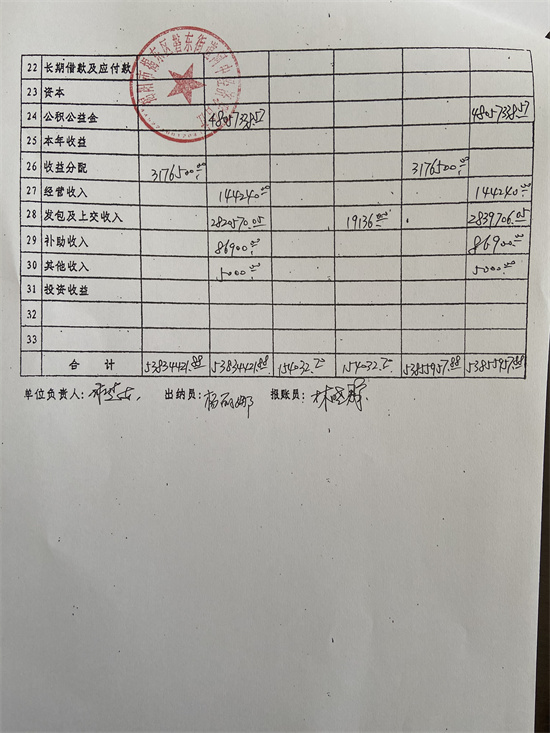 22 长期借款及应付款
23 资本
24 公积公益金 480573857 480573857
25 本年收益
26 收益分配 3176500.00 3176500.00
27 经营收入 144240.00 144240.00
28 发包及上交收入 2820570.05 19136.00 2839706.05
29 补助收入 86900.00 86900.00
30 其他收入 5000.00 5000.00
31 投资收益
32
33
合计 53834421.88 53834421.88 154032.70 154032.70 53855957.88 53855957.88
单位负责人： 出纳员：杨丽娜 报账员：林